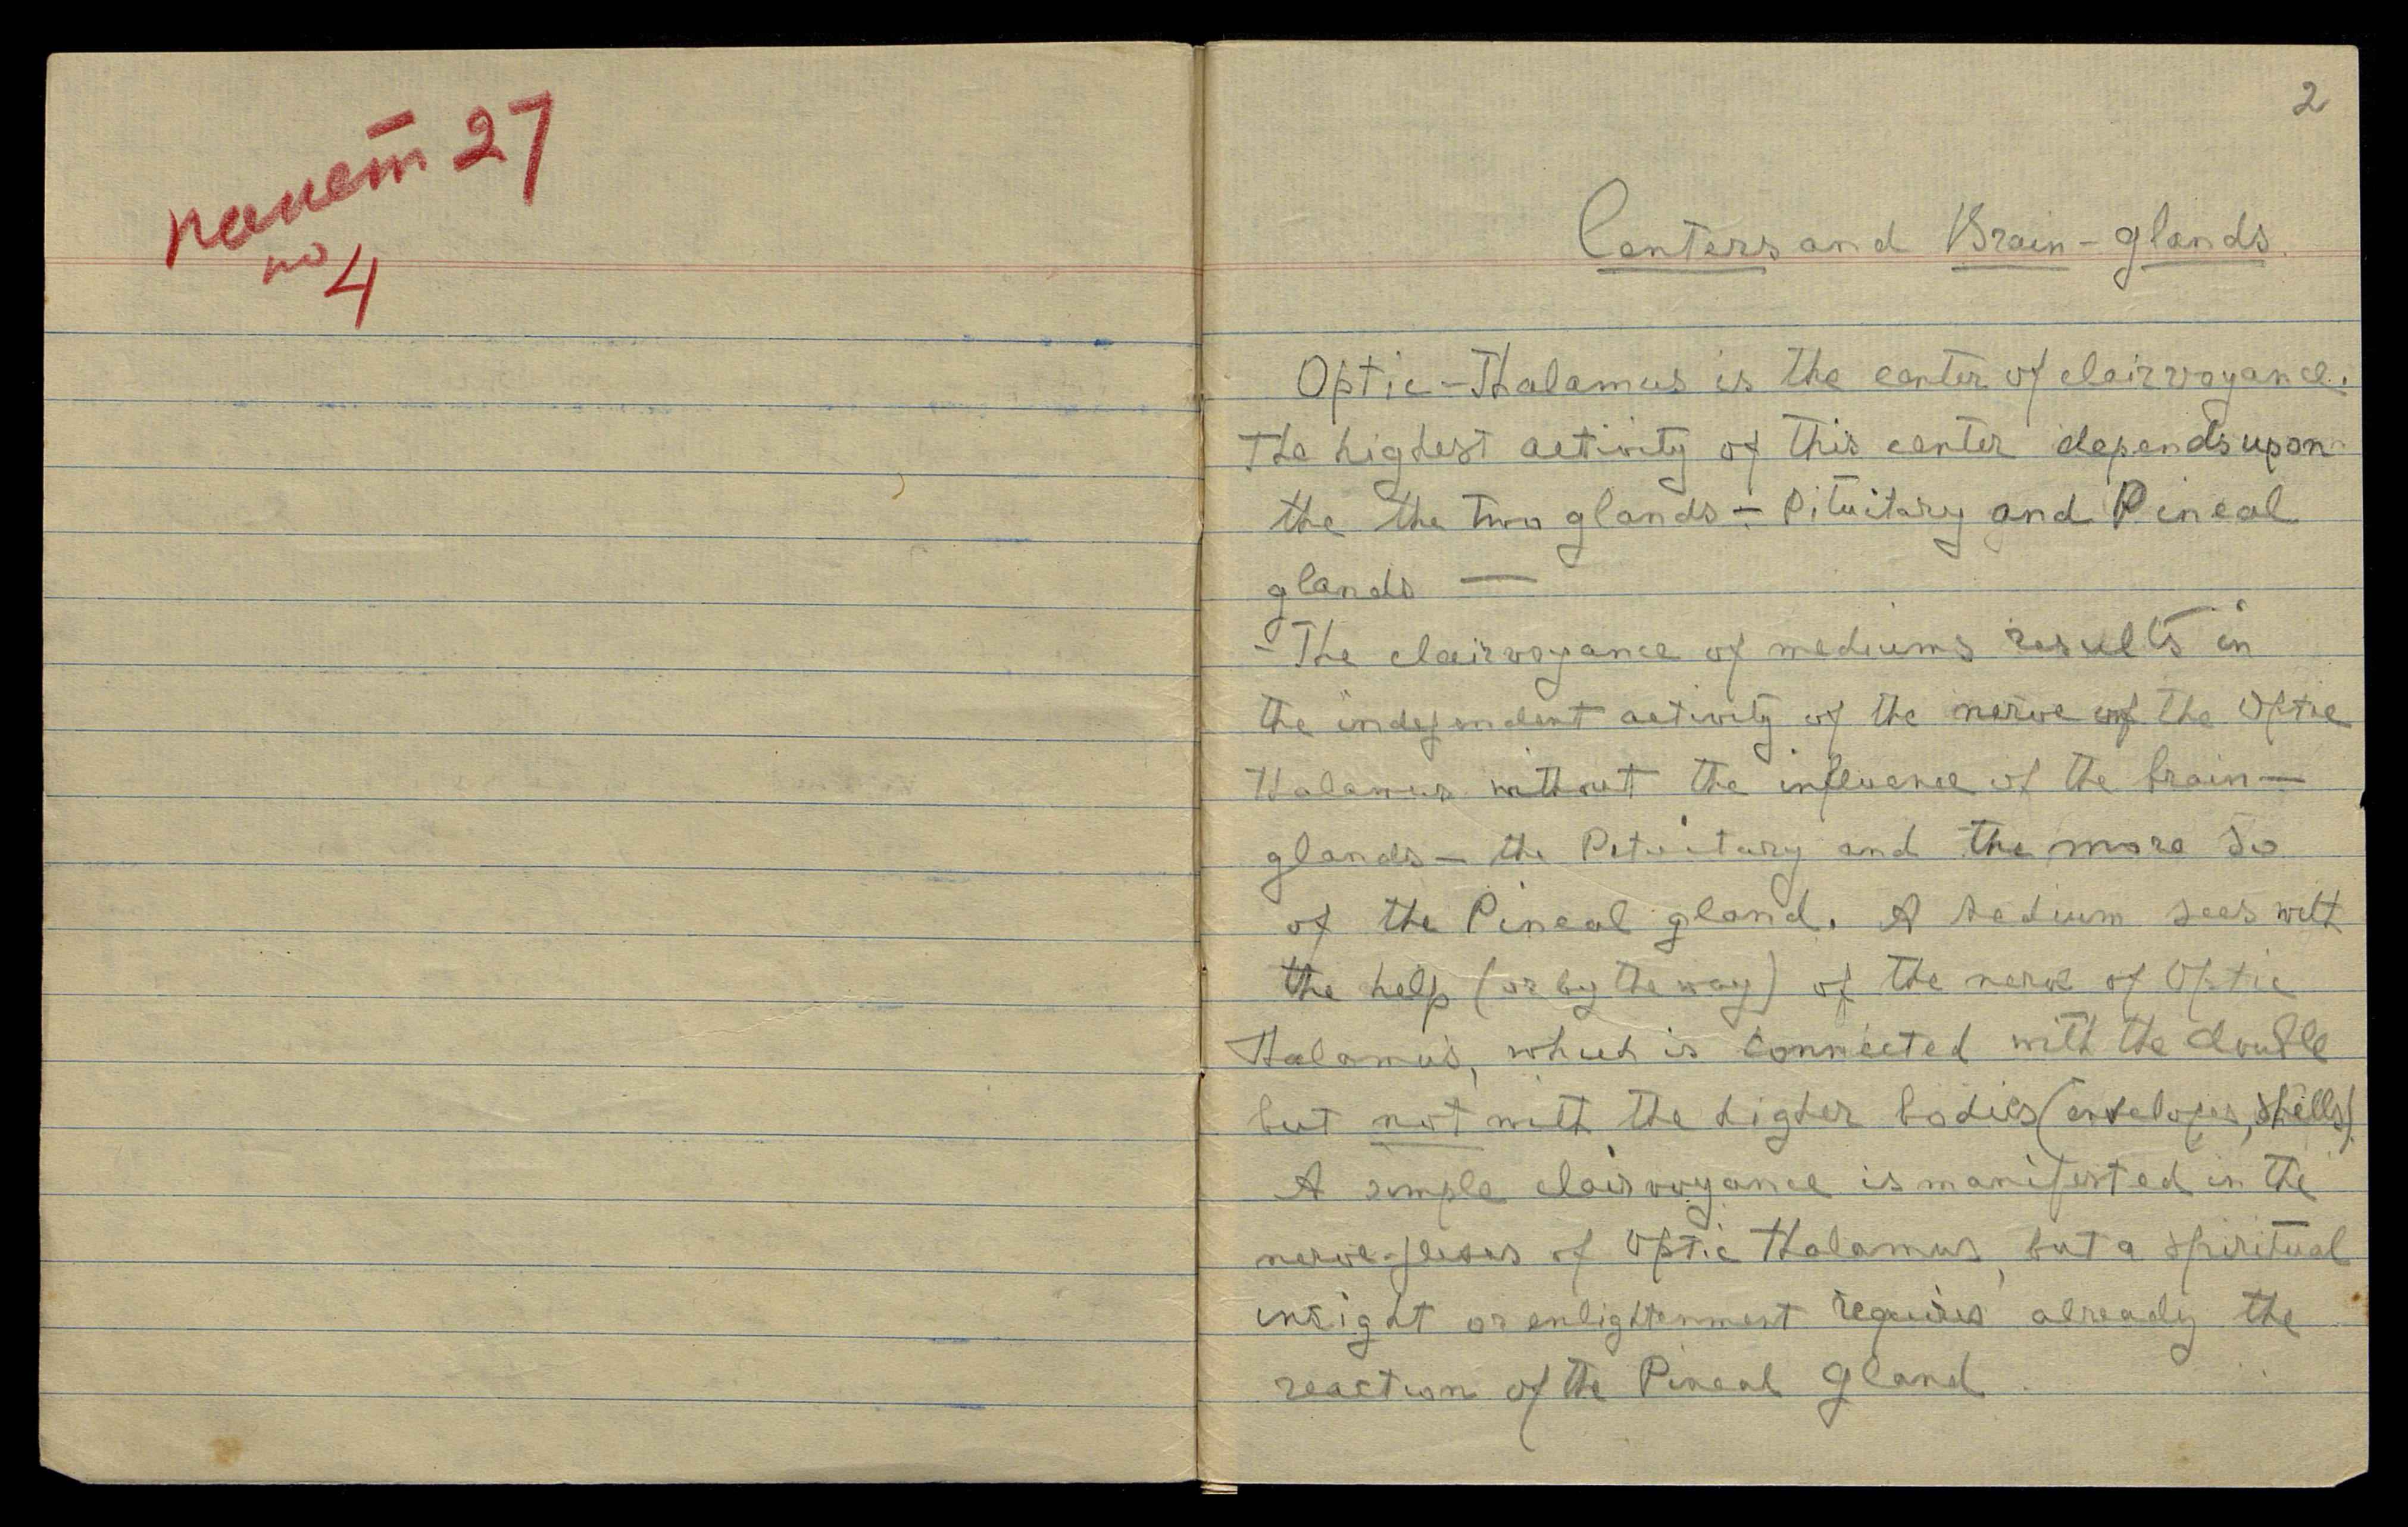 пакет 27
no 4
2
Centers and Brain-glands.
Optic-Thalamus is the center of clairvoyance.
The highest activity of this center depends upon
the the two glands - Pituitary and Pineal
glands —
- The clairvoyance of mediums results in
the independent activity of the nerve of the Optic
Thalamus without the influence of the brain-
glands - the Pituitary and the more so
of the Pineal gland. A medium sees with
the help (or by the way) of the nerve of Optic
Thalamus, which is connected with the double
but not with the higher bodies (envelopes, shells).
A simple clairvoyance is manifested in the
of Optic Thalamus, but a spiritual
insight or enlightenment requires already the
reaction of the Pineal Gland.